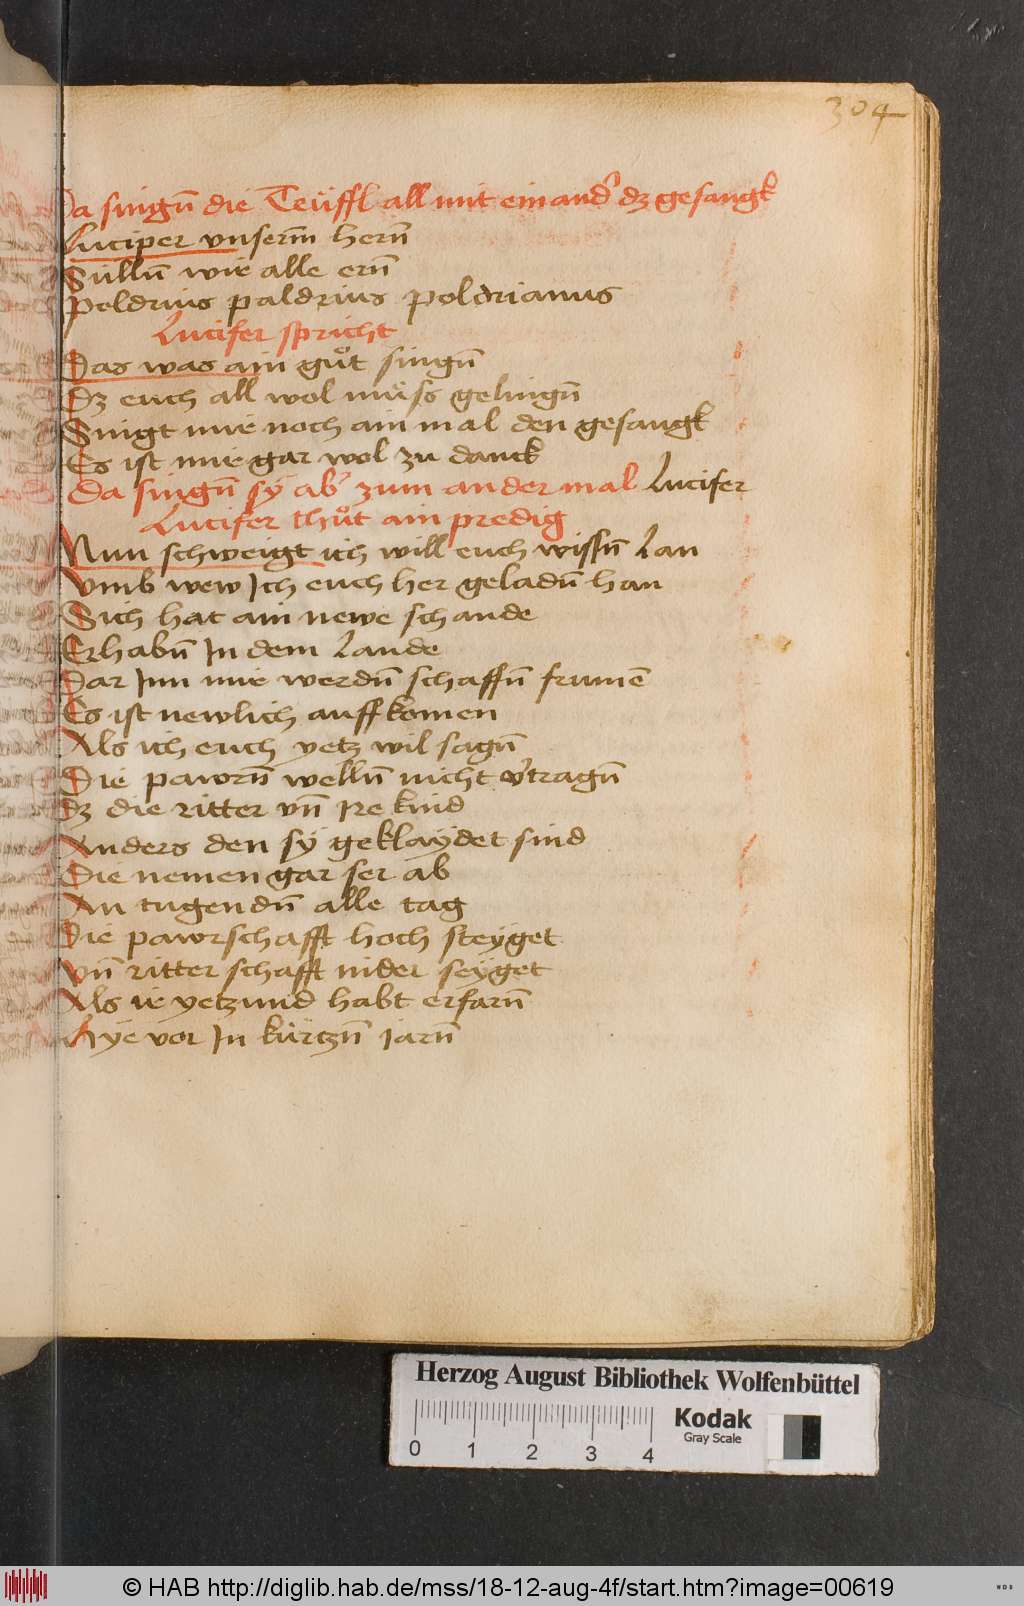 304
Da singn̄ die Teüffl all mit einand' dz gesangk
Luciper vnserm̄ hern̄
Sülln̄ wir alle ern̄
Poldrius paldrius poldrianus
Lucifer spricht
Das was ain guͦt singn̄
Dz euch all wol müss gelingn̄
Singt mir noch ain mal den gesangk
Es ist mir gar wol zu danck
Da singn̄ sÿ ab' zum ander mal Lucifer
Lucifer thuͦt ain predig
Nun schweigt ich will euch wissn̄ Lan
Vmb wew Ich euch her geladn̄ han
Sich hat ain newe schande
Erhabn̄ In dem Lande
Dar Inn mir werdn̄ schaffn̄ frumē
Es ist newlich auffkomen
Als ich euch yetz wil sagn̄
Die pawrn̄ welln̄ nicht v'tragn̄
Dz die ritter vn̄ Ire kind
Anders den sÿ geklaÿdet sind
Die nemen gar ser ab
An tugendn̄ alle tag
Die pawrschafft hoch steÿget
Vn̄ ritterschafft nider seÿget
Als ir yetzund habt erfarn̄
Hÿe vor In kürtzn̄ iarn̄
Herzog August Bibliothek Wolfenbüttel
Kodak
Gray Scale
0 1 2 3 4
© HAB http://diglib.hab.de/mss/18-12-aug-4f/start.htm?image=00619